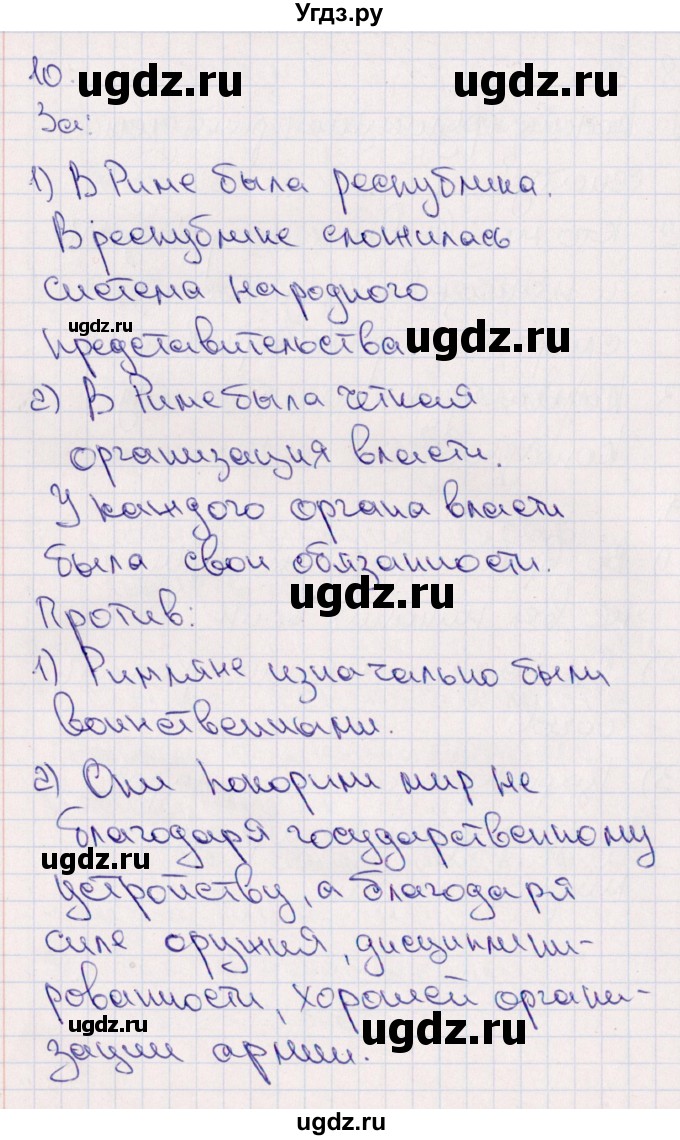 Угдз.ру
10.
ugdz.ru
ugdz.ru
За:
1) В Риме была республика.
В республике сложилась
система народного
ugdz.ru
представительства
ugdz.ru
2) В Риме была четкая
организация власти.
У каждого органа власти
была свои обязанности.
ugdz.ru
Против:
1) Римляне изначально были
воинственными.
2) Они покорили мир не
благодаря государственному
ugdz.ru
устройству, а благодаря
силе оружия, дисциплини-
рованности, хорошей органи-
ugdz.ru
ugdz.ru
зации армии.
ugdz.ru